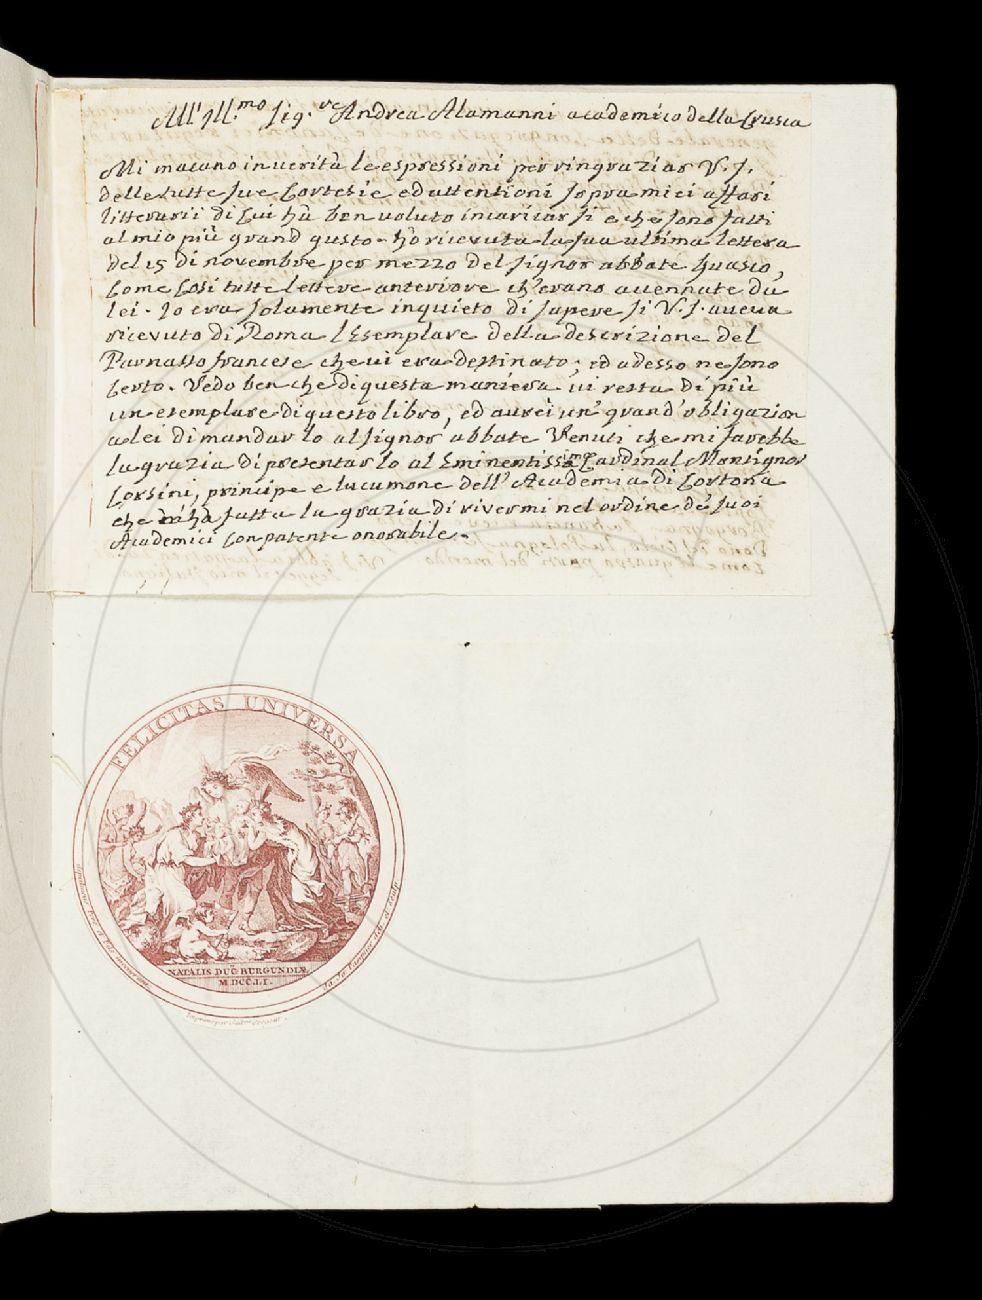 All' Ill.mo Sig.re Andrea Alamanni academico della Crusca
Mi macano in uerità le espressioni per ringraziar V. S.
delle tutte sue Cortesie ed attentioni sopra miei affari
litterarii di Cui hà ben uoluto incaricarsi e che sono fatti
al mio più grand gusto. hò riceuuta la sua ultima lettera
del 15 di novembre per mezzo del signor abbate Guasco,
Come Cosi tutte lettere anteriore ch'erano auennate da
lei. Io era solamente inquieto di sapere si V. S. aueua
riceuuto di Roma l'Esemplare della descrizione del
Parnasso francese che ui era destinato; ed adesso ne sono
Certo. Vedo ben che di questa maniera ui resta di più
un esemplare di questo libro, ed aurei un' grand' obligazion
a lei di mandar lo al signor abbate Venuti che mi farebbe
la grazia di presentar lo al Eminentissimo Cardinal Montignor
Corsini, principe e lucumone dell' Academia di Cortona
che m'hà fatta la grazia di rivermi nel ordine de suoi
Academici Con patente onorabile.
FELICITAS UNIVERSA
NATALIS DUC. BURGUNDIÆ
M.DCC.LI.